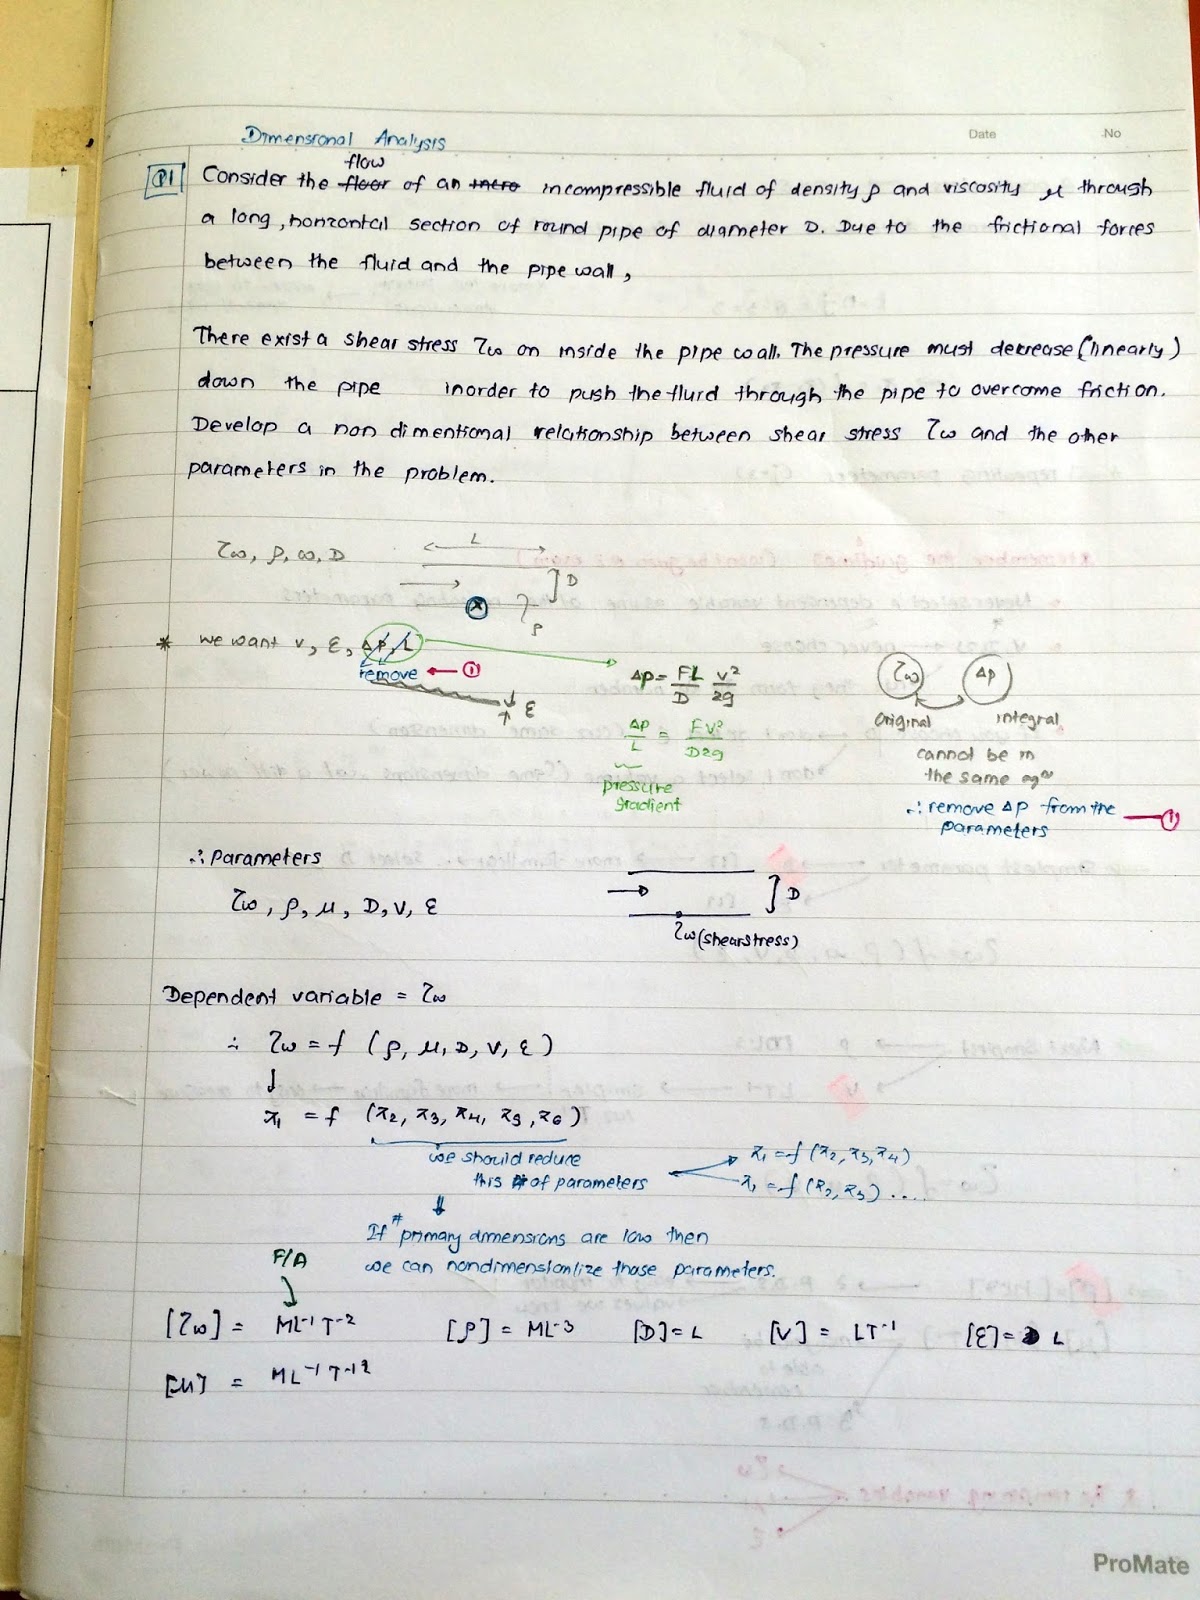 Dimensional Analysis
Date No
Q1 Consider the floor flow of an incompressible fluid of density ρ and viscosity μ through
a long, horizontal section of round pipe of diameter D. Due to the frictional forces
between the fluid and the pipe wall,
There exist a shear stress τw on inside the pipe wall. The pressure must decrease (linearly)
down the pipe inorder to push the fluid through the pipe to overcome friction.
Develop a non dimentional relationship between shear stress τw and the other
parameters in the problem.
τw, ρ, ω, D
L
D
ρ
* we want v, ε, ΔP, L
remove ← ①
ε
ΔP = FL/D V²/2g
ΔP/L = FV²/D2g
pressure
gradient
τw ΔP
original integral
cannot be in
the same eqⁿ
∴ remove ΔP from the — ①
parameters
∴ parameters
τw, ρ, μ, D, V, ε
D
τw (shearstress)
Dependent variable = τw
∴ τw = f (ρ, μ, D, V, ε)
↓
π1 = f (π2, π3, π4, π5, π6)
we should reduce
this # of parameters
π1 = f (π2, π3, π4)
π1 = f (π2, π3) ....
If # primary dimensions are low then
we can nondimensionlize those parameters.
F/A
[τw] = ML⁻¹T⁻² [ρ] = ML⁻³ [D] = L [V] = LT⁻¹ [ε] = L
[μ] = ML⁻¹T⁻¹
ProMate